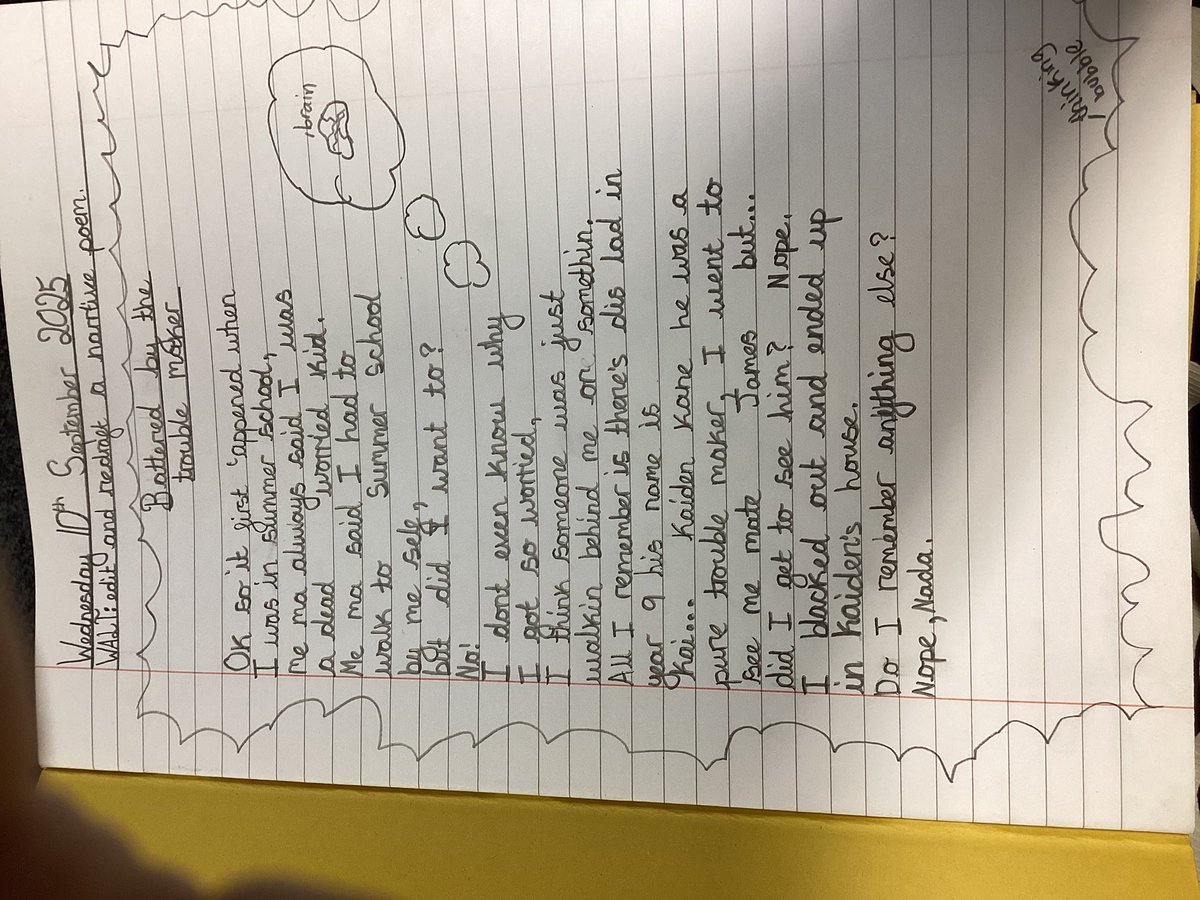 Wednesday 10th September 2025
WALT: edit and redraft a narrtive poem.
Battered by the
trouble maker
OK so it first 'appened when
I was in summer school,
me ma always said I was
a dead worried kid.
Me ma said I had to
walk to summer school
by me self,
but did I want to?
No!
I dont even know why
I got so worried,
I think someone was just
walkin behind me or somethin.
All I remember is there's dis lad in
year 9 his name is
Kai... Kaiden Kane he was a
pure trouble maker, I went to
see me mate James but...
did I get to see him? Nope.
I blacked out and ended up
in Kaiden's house.
Do I remember anything else?
Nope, Nada.
brain
thinking
bubble